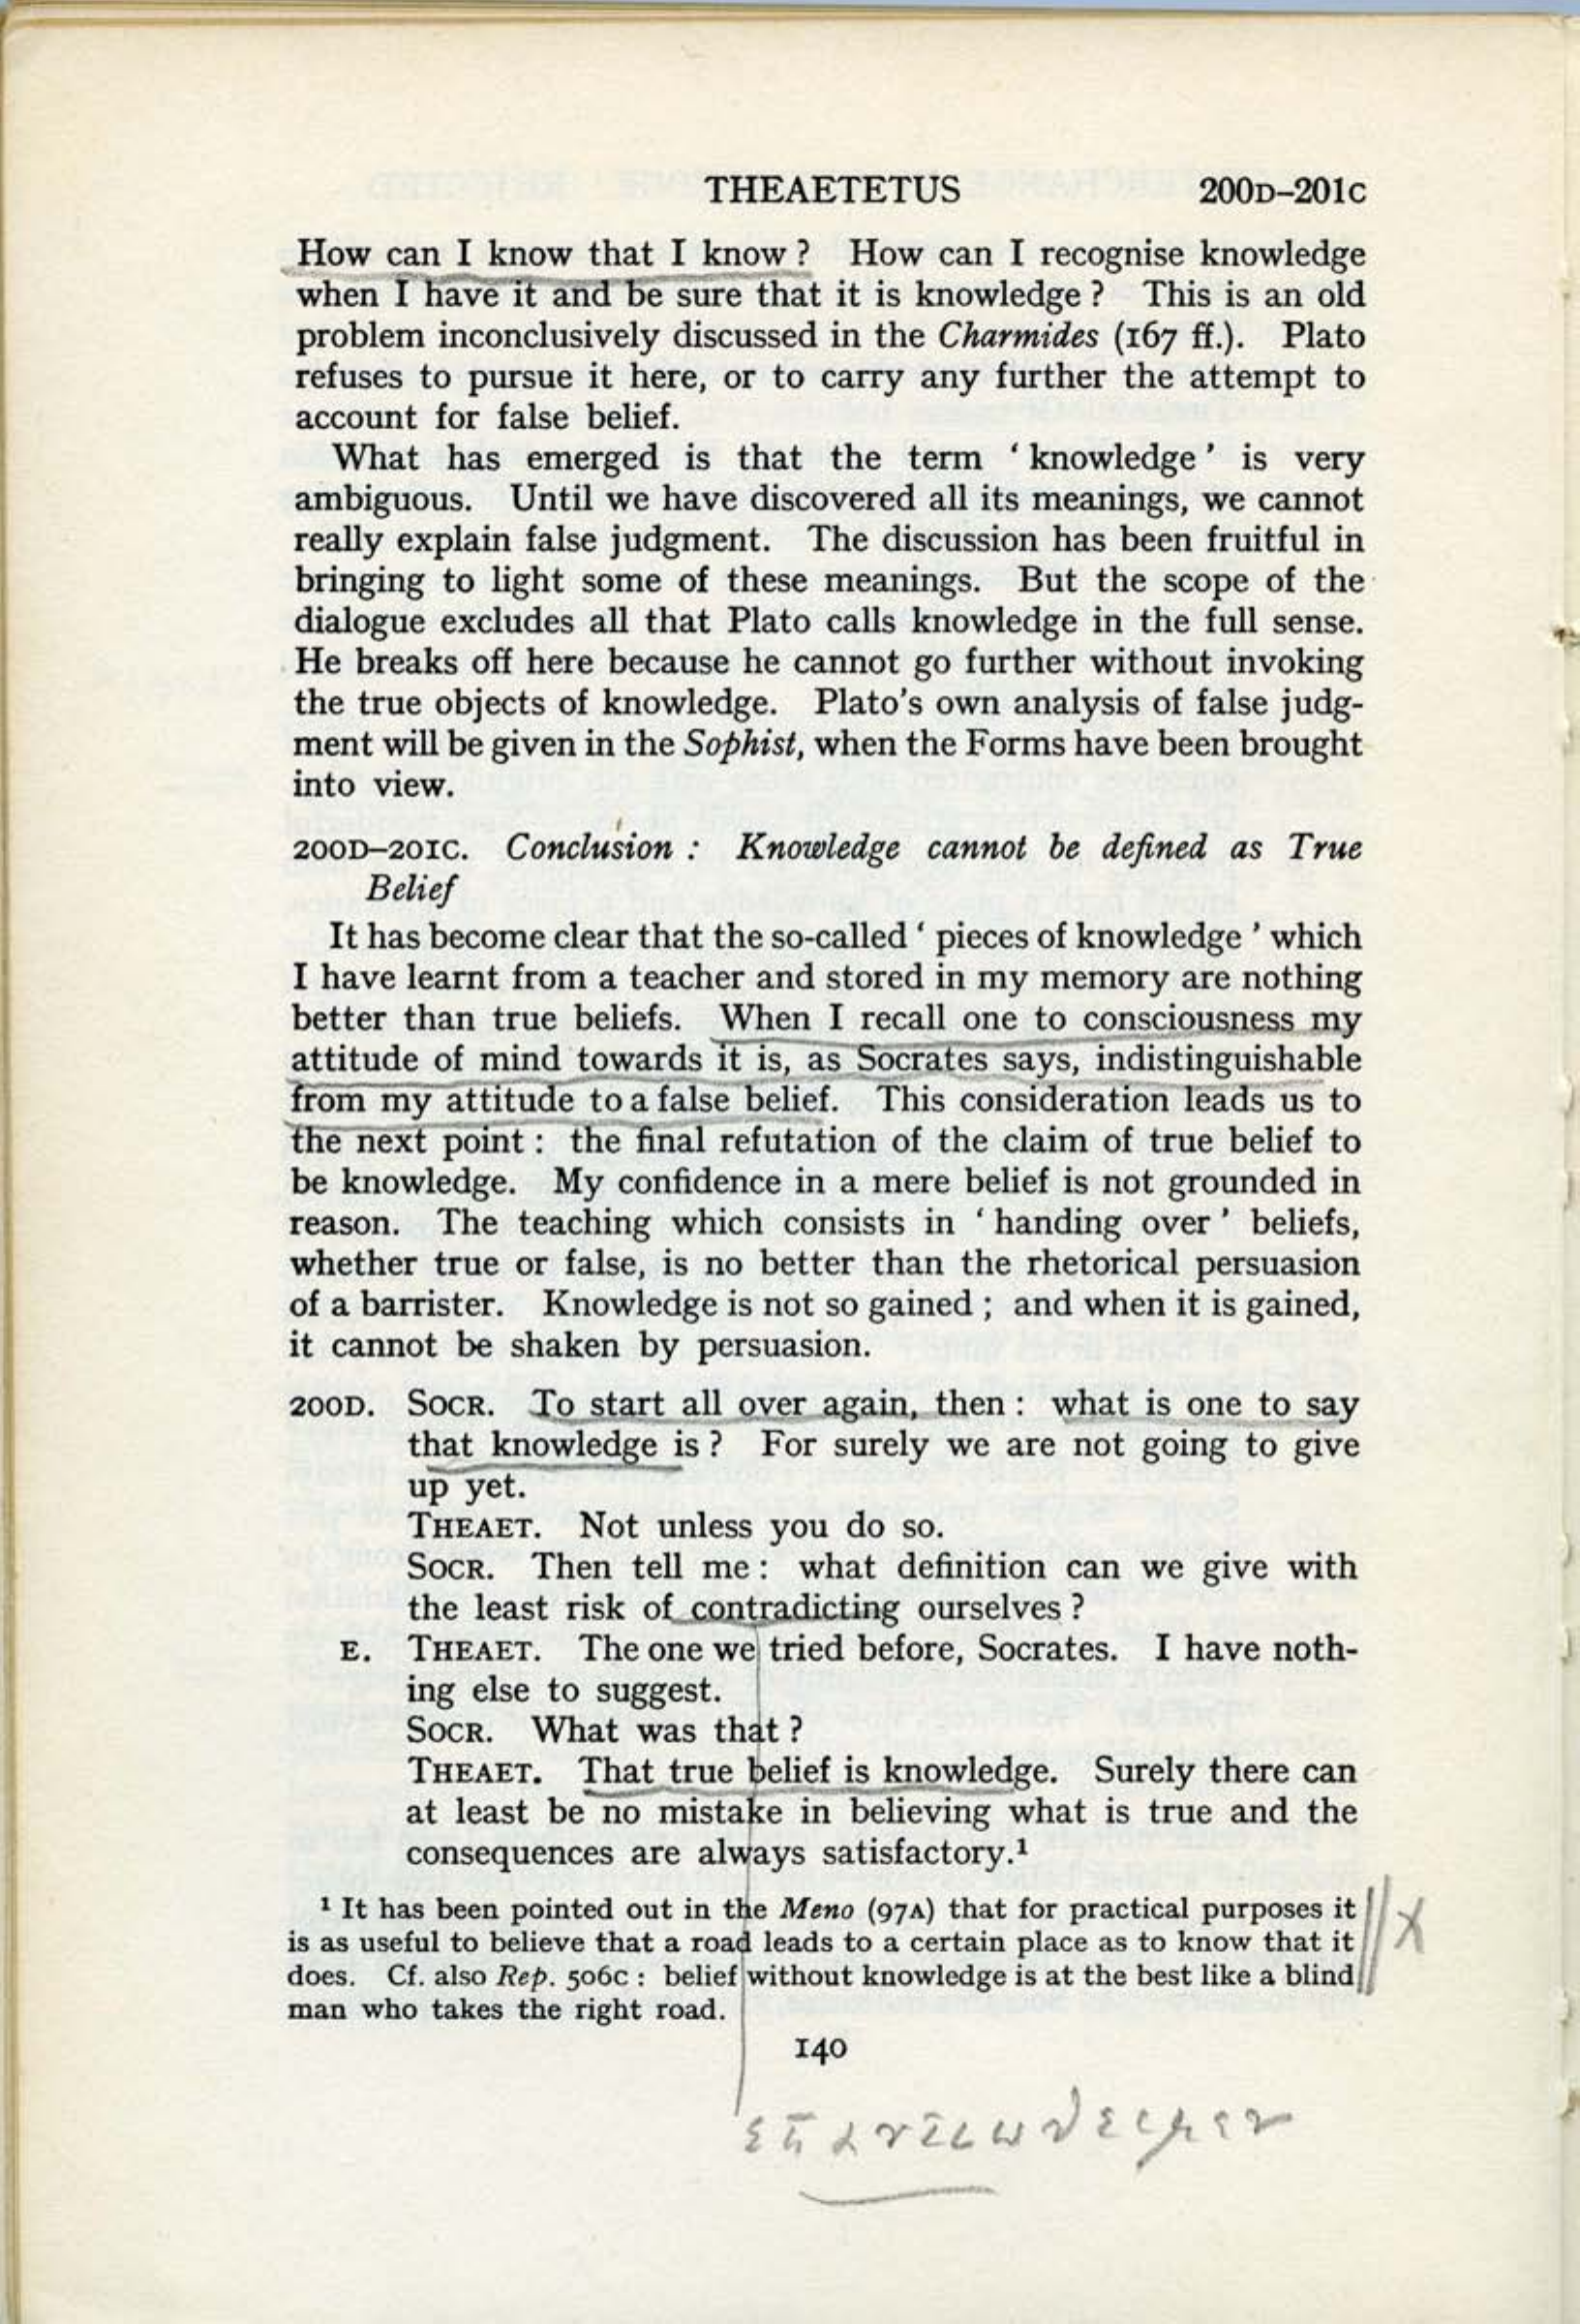 THEAETETUS 200D–201C
How can I know that I know ? How can I recognise knowledge
when I have it and be sure that it is knowledge ? This is an old
problem inconclusively discussed in the Charmides (167 ff.). Plato
refuses to pursue it here, or to carry any further the attempt to
account for false belief.
What has emerged is that the term ‘ knowledge ’ is very
ambiguous. Until we have discovered all its meanings, we cannot
really explain false judgment. The discussion has been fruitful in
bringing to light some of these meanings. But the scope of the
dialogue excludes all that Plato calls knowledge in the full sense.
He breaks off here because he cannot go further without invoking
the true objects of knowledge. Plato’s own analysis of false judg-
ment will be given in the Sophist, when the Forms have been brought
into view.
200D–201C. Conclusion : Knowledge cannot be defined as True
Belief
It has become clear that the so-called ‘ pieces of knowledge ’ which
I have learnt from a teacher and stored in my memory are nothing
better than true beliefs. When I recall one to consciousness my
attitude of mind towards it is, as Socrates says, indistinguishable
from my attitude to a false belief. This consideration leads us to
the next point : the final refutation of the claim of true belief to
be knowledge. My confidence in a mere belief is not grounded in
reason. The teaching which consists in ‘ handing over ’ beliefs,
whether true or false, is no better than the rhetorical persuasion
of a barrister. Knowledge is not so gained ; and when it is gained,
it cannot be shaken by persuasion.
200D. SOCR. To start all over again, then : what is one to say
that knowledge is ? For surely we are not going to give
up yet.
THEAET. Not unless you do so.
SOCR. Then tell me : what definition can we give with
the least risk of contradicting ourselves ?
E. THEAET. The one we tried before, Socrates. I have noth-
ing else to suggest.
SOCR. What was that ?
THEAET. That true belief is knowledge. Surely there can
at least be no mistake in believing what is true and the
consequences are always satisfactory.¹
¹ It has been pointed out in the Meno (97A) that for practical purposes it
is as useful to believe that a road leads to a certain place as to know that it
does. Cf. also Rep. 506C : belief without knowledge is at the best like a blind
man who takes the right road.
140